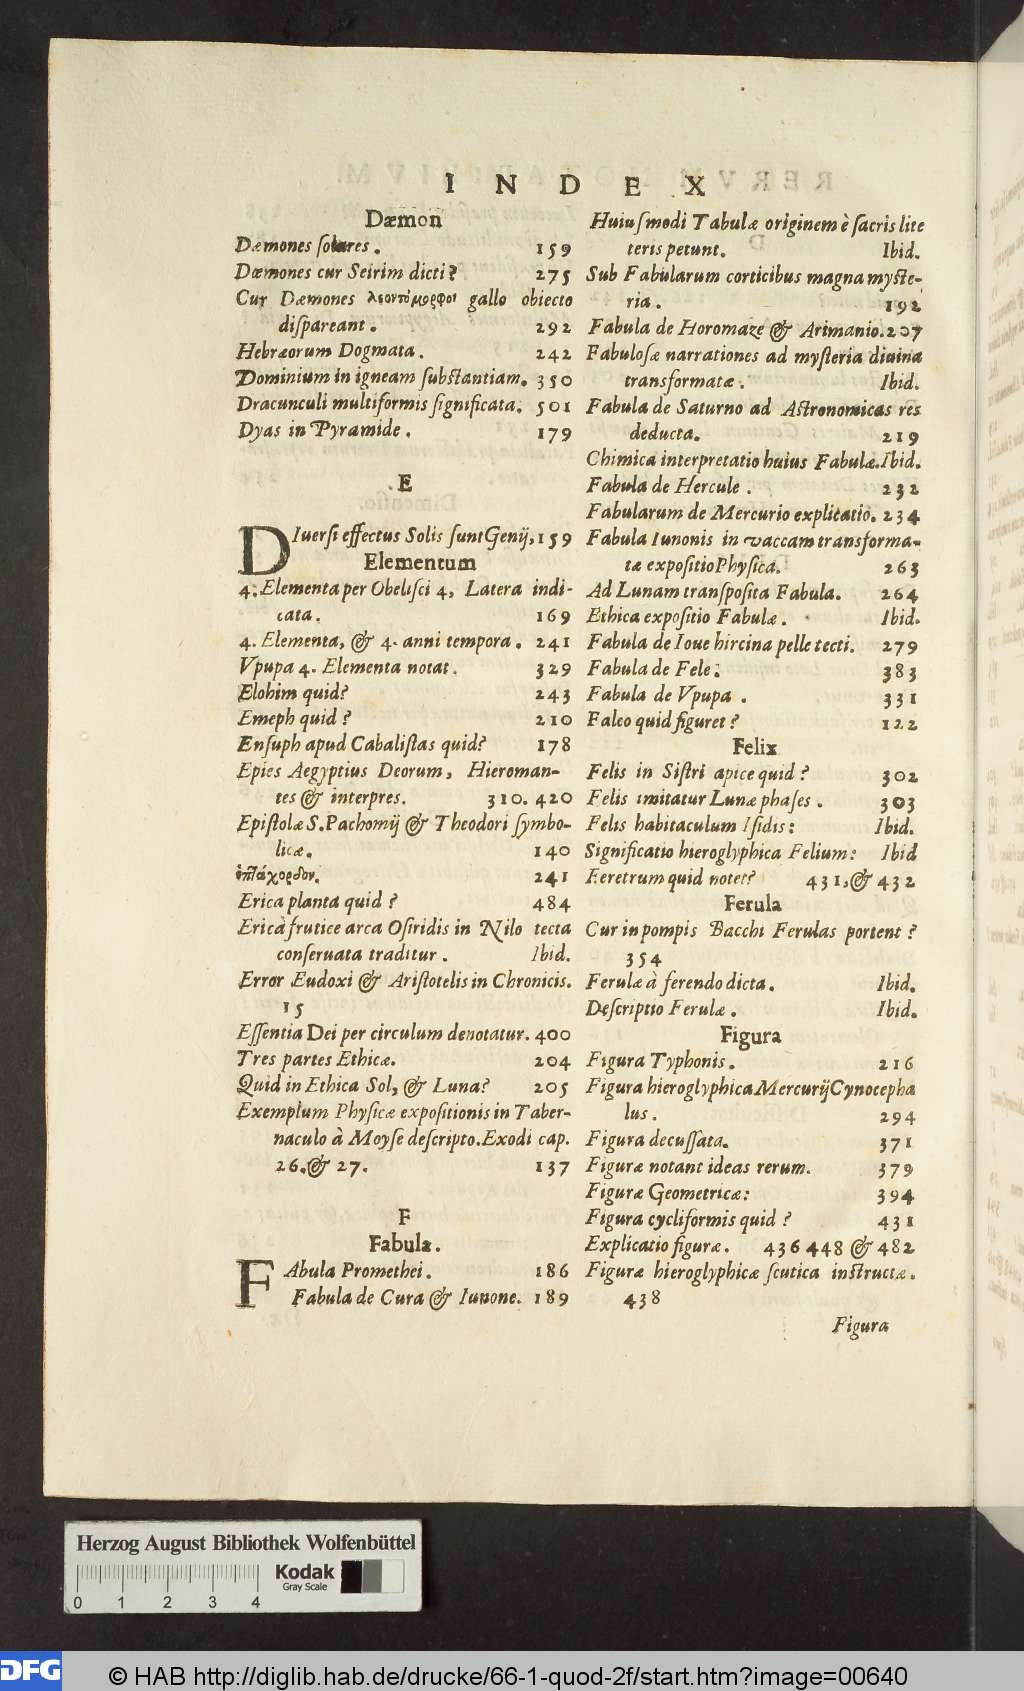 INDEX
Dæmon
Dæmones solares. 159
Dæmones cur Seirim dicti? 275
Cur Dæmones λεοντόμορφοι gallo obiecto
dispareant. 292
Hebræorum Dogmata. 242
Dominium in igneam substantiam. 350
Dracunculi multiformis significata. 501
Dyas in Pyramide. 179
E
DIuersi effectus Solis sunt Genij, 159
Elementum
4. Elementa per Obelisci 4, Latera indi-
cata. 169
4. Elementa, & 4. anni tempora. 241
Vpupa 4. Elementa notat. 329
Elohim quid? 243
Emeph quid? 210
Ensuph apud Cabalistas quid? 178
Epies Aegyptius Deorum, Hieroman-
tes & interpres. 310. 420
Epistolæ S. Pachomij & Theodori symbo-
licæ. 140
ἑπτάχορδον. 241
Erica planta quid? 484
Ericà frutice arca Osiridis in Nilo tecta
conseruata traditur. Ibid.
Error Eudoxi & Aristotelis in Chronicis.
15
Essentia Dei per circulum denotatur. 400
Tres partes Ethicæ. 204
Quid in Ethica Sol, & Luna? 205
Exemplum Physicæ expositionis in Taber-
naculo à Moyse descripto. Exodi cap.
26. & 27. 137
F
Fabula.
FAbula Promethei. 186
Fabula de Cura & Iunone. 189
Huiusmodi Tabulæ originem è sacris lite
teris petunt. Ibid.
Sub Fabularum corticibus magna myste-
ria. 192
Fabula de Horomaze & Arimanio. 207
Fabulosæ narrationes ad mysteria diuina
transformatæ. Ibid.
Fabula de Saturno ad Astronomicas res
deducta. 219
Chimica interpretatio huius Fabulæ. Ibid.
Fabula de Hercule. 232
Fabularum de Mercurio explicatio. 234
Fabula Iunonis in vaccam transforma-
tæ expositio Physica. 263
Ad Lunam transposita Fabula. 264
Ethica expositio Fabulæ. Ibid.
Fabula de Ioue hircina pelle tecti. 279
Fabula de Fele: 383
Fabula de Vpupa. 331
Falco quid figuret? 122
Felix
Felis in Sistri apice quid? 302
Felis imitatur Lunæ phases. 303
Felis habitaculum Isidis: Ibid.
Significatio hieroglyphica Felium: Ibid
Feretrum quid notet? 431, & 432
Ferula
Cur in pompis Bacchi Ferulas portent?
354
Ferulæ à ferendo dicta. Ibid.
Descriptio Ferulæ. Ibid.
Figura
Figura Typhonis. 216
Figura hieroglyphica Mercurij Cynocepha
lus. 294
Figura decussata. 371
Figuræ notant ideas rerum. 379
Figuræ Geometricæ: 394
Figura cycliformis quid? 431
Explicatio figuræ. 436 448 & 482
Figuræ hieroglyphicæ scutica instructæ.
438
Figura
Herzog August Bibliothek Wolfenbüttel
Kodak
Gray Scale
0 1 2 3 4
DFG
© HAB http://diglib.hab.de/drucke/66-1-quod-2f/start.htm?image=00640